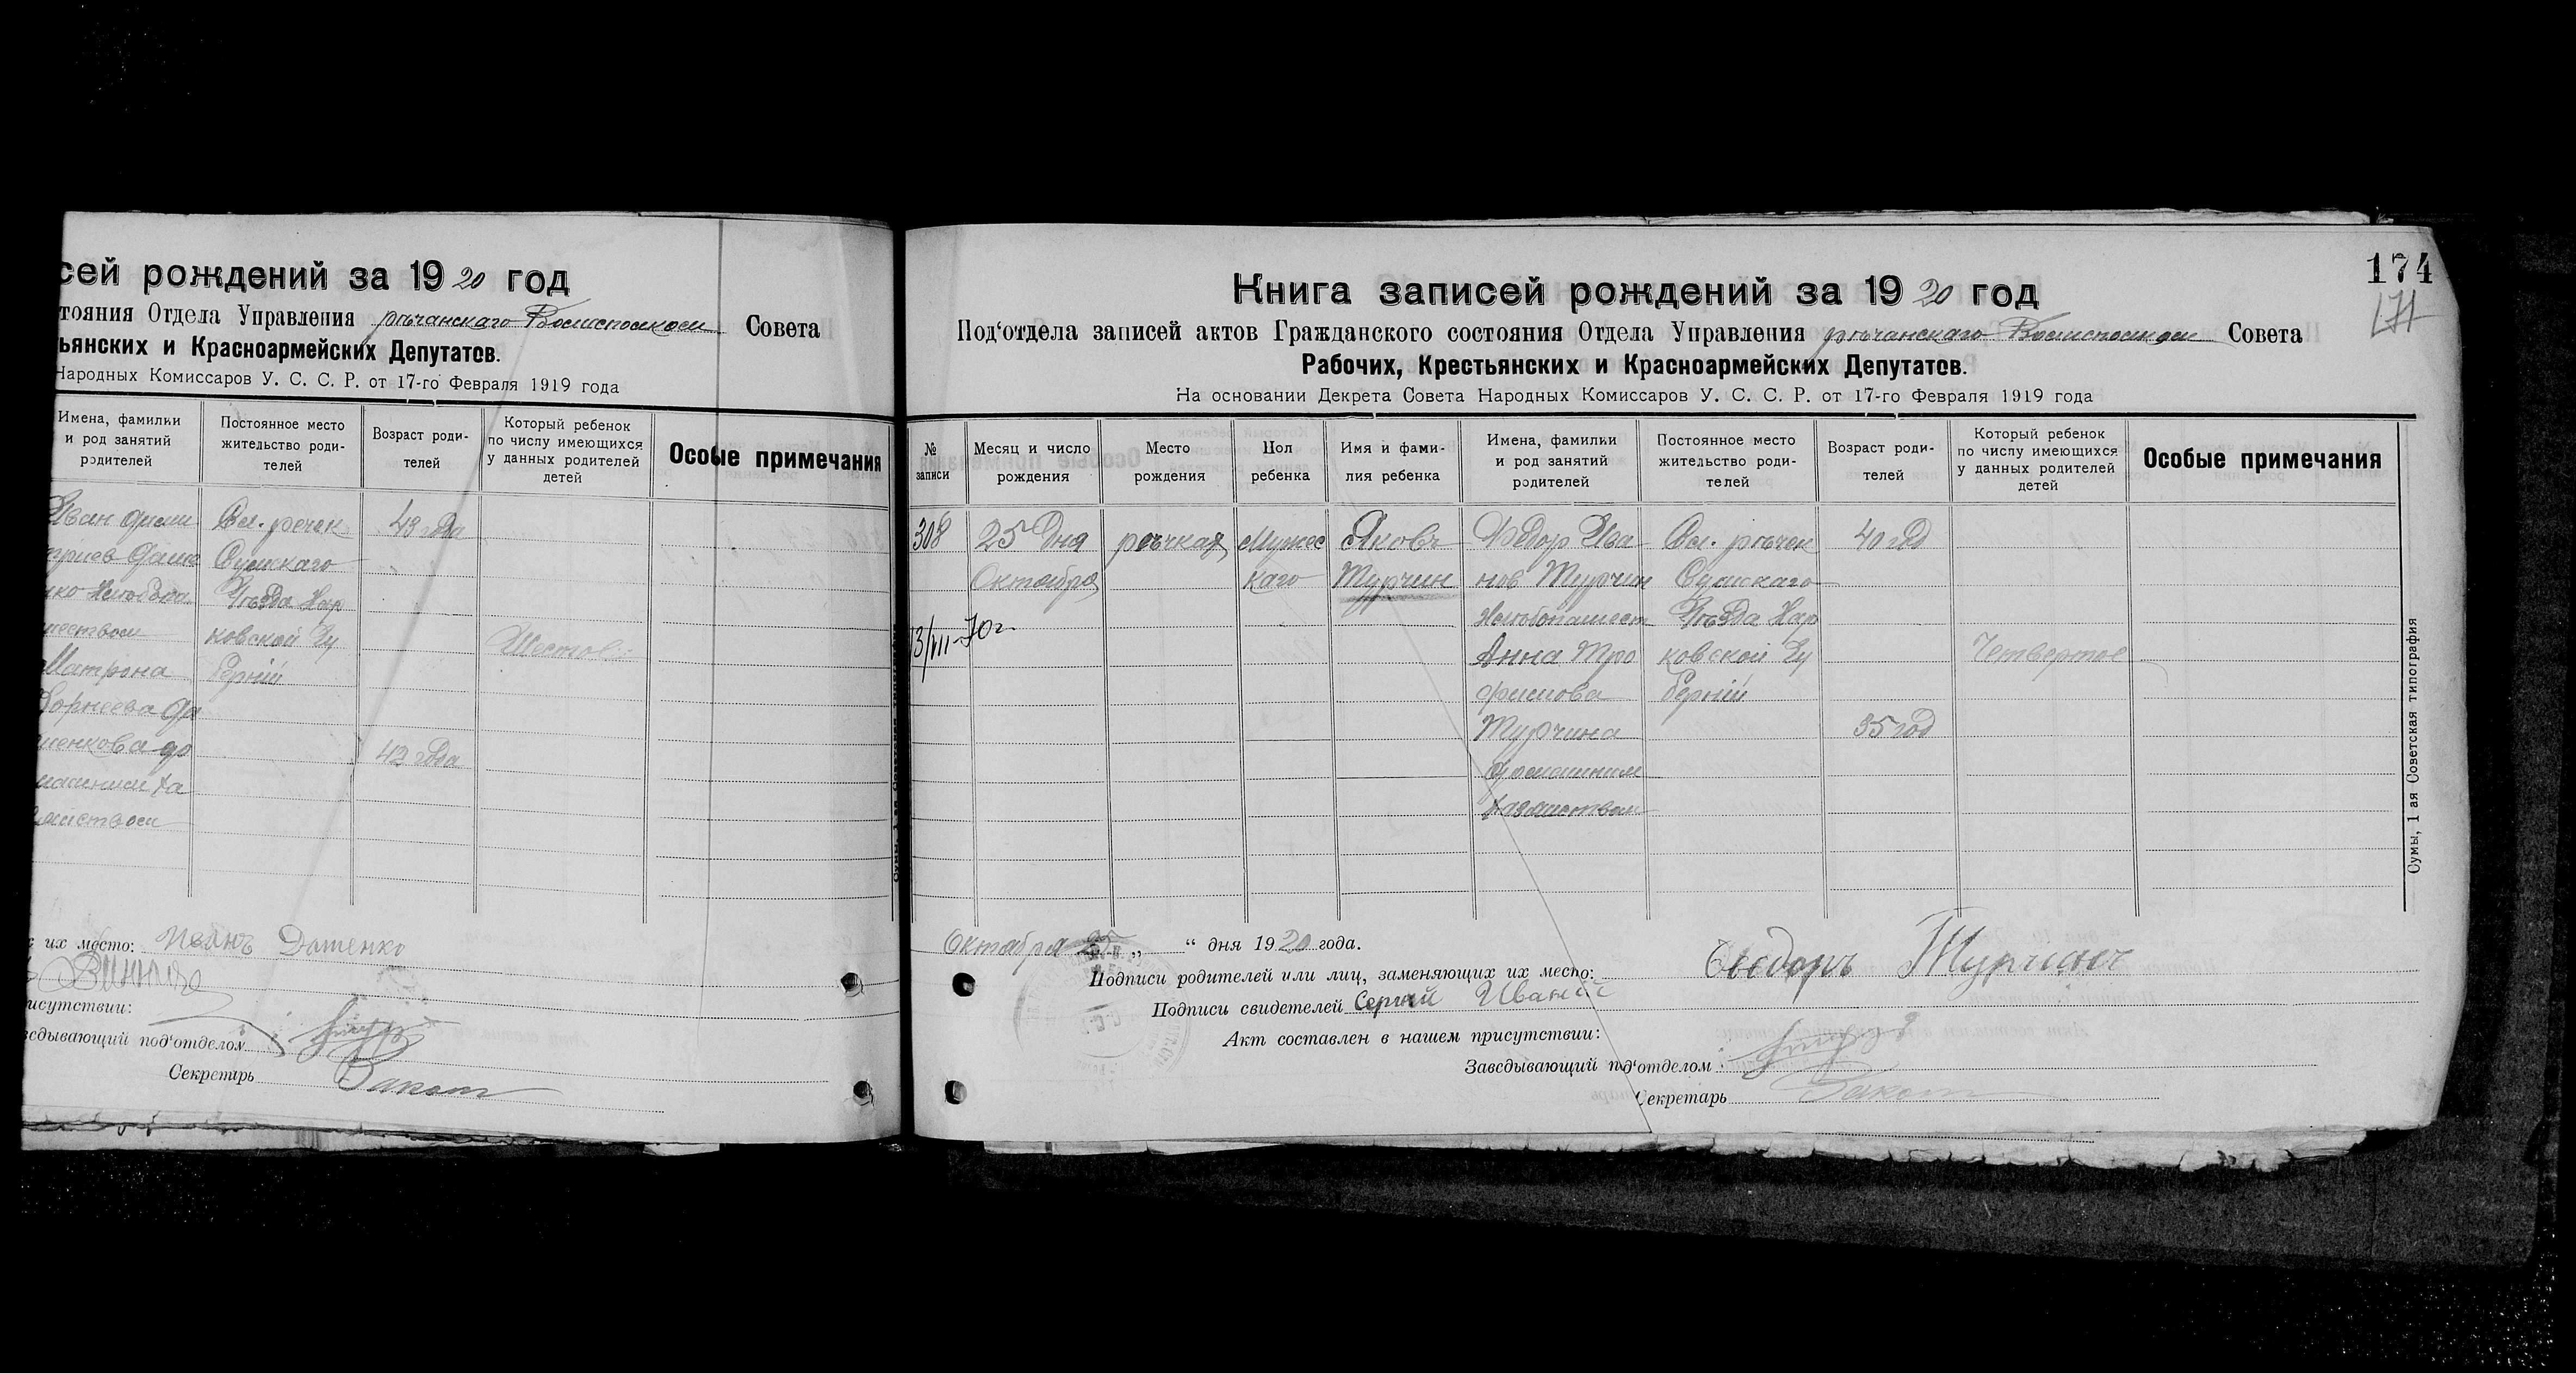 сей рождений за 1920 год
тояния Отдела Управления рѣчанскаго Совета
ьянских и Красноармейских Депутатов.
Народных Комиссаров У. С. С. Р. от 17-го Февраля 1919 года
Имена, фамилии и род занятий родителей
Постоянное место жительство роди- телей
Возраст роди- телей
Который ребенок по числу имеющихся у данных родителей детей
Особые примечания
Иван Вол. речек 43 года
Сумскаго
Уѣзда Хар
ковской Гу Шестой
Матрона Берніи
Корнеева
42 года
их место: Иванъ Доценко
исутствии:
ведывающий под‘отделом
Секретарь
174
171
Книга записей рождений за 1920 год
Под‘отдела записей актов Гражданского состояния Отдела Управления рѣчанскаго Совета
Рабочих, Крестьянских и Красноармейских Депутатов.
На основании Декрета Совета Народных Комиссаров У. С. С. Р. от 17-го Февраля 1919 года
№ записи
Месяц и число рождения
Место рождения
Пол ребенка
Имя и фами- лия ребенка
Имена, фамилии и род занятий родителей
Постоянное место жительство роди- телей
Возраст роди- телей
Который ребенок по числу имеющихся у данных родителей детей
Особые примечания
308 25 Дня рѣчкая Мужес Яковъ Федор Ива Вол. рѣчек 40 год
Октября каго Турчин нов Турчин Сумскаго
Хлѣбопашест Уѣзда Хар
13/VII-70г. Анна Тро ковской Гу Четвертое
фимова Берніи
Турчина 35 год
домашним
хазяиством
Октября 25 „ “ дня 1920 года.
Подписи родителей или лиц, заменяющих их место: Феодоръ Турчинъ
Подписи свидетелей Сергий
Акт составлен в нашем присутствии:
Заведывающий под‘отделом
Секретарь
Сумы, 1-ая Советская типография